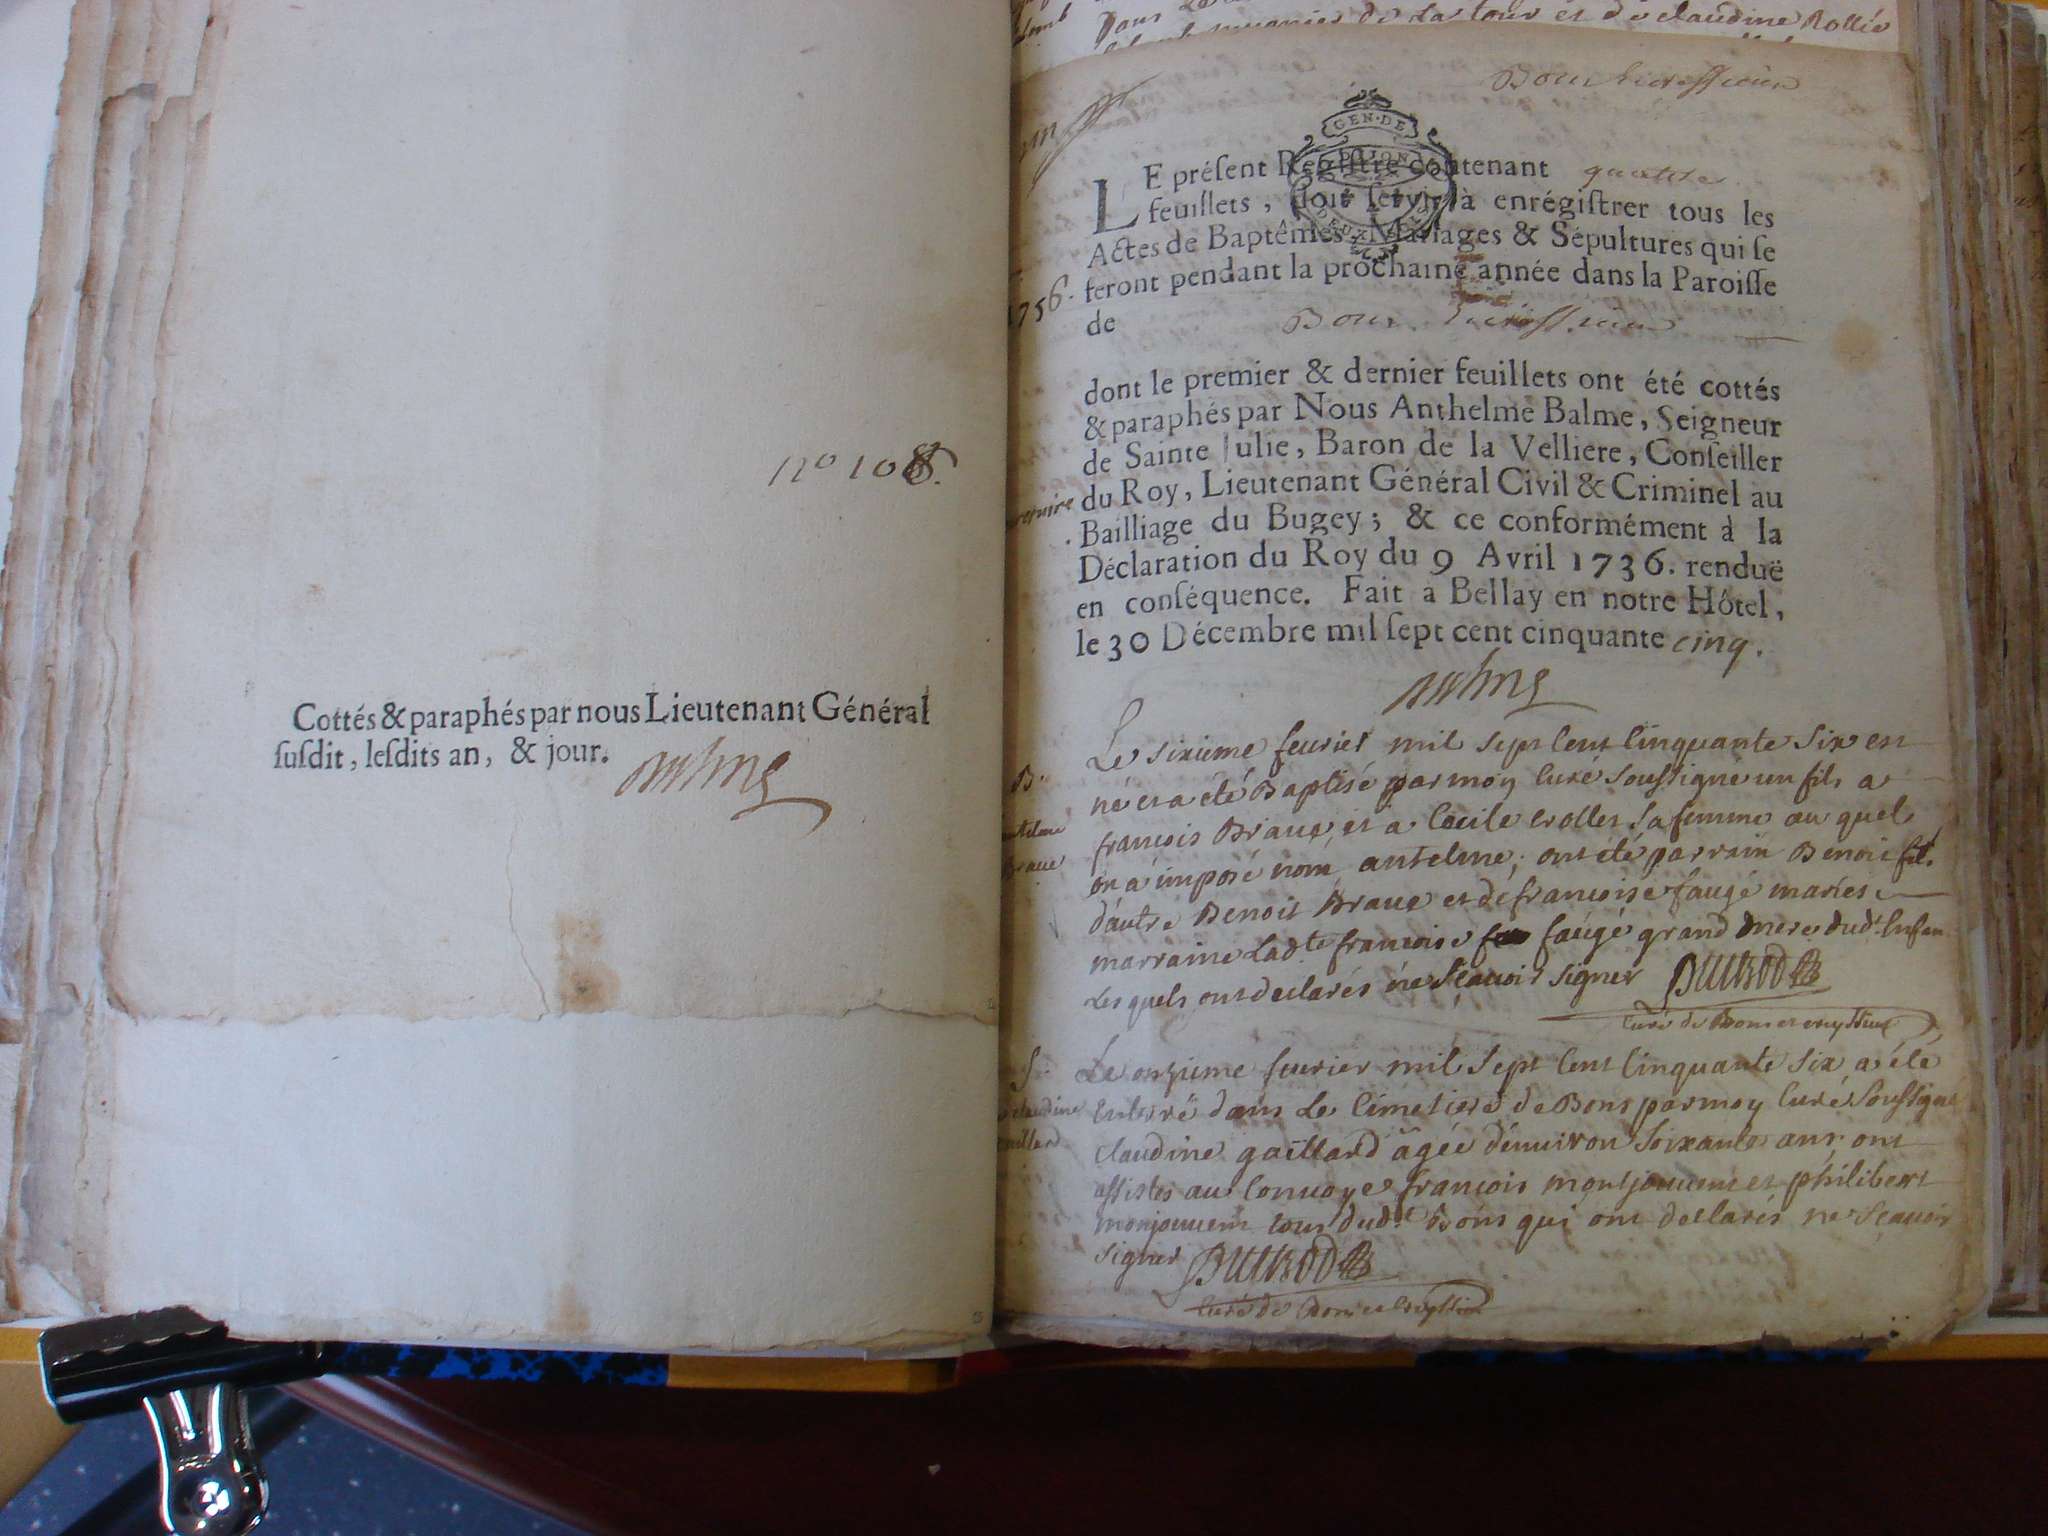 nº 108.
Cottés & paraphés par nous Lieutenant Général
ſuſdit, leſdits an, & jour.
et de claudine Rollée
GEN·DE
DIJON
LE préſent Regiſtre contenant quatre
feuillets, doit ſervir à enrégiſtrer tous les
Actes de Baptêmes, Mariages & Sépultures qui ſe
feront pendant la prochaine année dans la Paroiſſe
de
dont le premier & dernier feuillets ont été cottés
& paraphés par Nous Anthelme Balme, Seigneur
de Sainte Julie, Baron de la Velliere, Conſeiller
du Roy, Lieutenant Général Civil & Criminel au
Bailliage du Bugey; & ce conformément à la
Déclaration du Roy du 9 Avril 1736. renduë
en conſéquence. Fait à Bellay en notre Hôtel,
le 30 Décembre mil ſept cent cinquante cinq.
1756.
B.
Le sixieme feurier mil sept Cent Cinquante Six est
né et a été Baptisé par moy Curé Soussigné un fils a
françois Braue, et a Cecile crollet Sa femme au quel
on a imposé nom antelme; ont été parrain Benoit fils
d'autre Benoit Braue et de françoise faugé mariés
marraine Lad.te françoise faugé grand mere dud.t Enfan
Lesquels ont declarés ne Sçauoir signer
Curé de Bons et
S.
Le onzieme feurier mil Sept Cent Cinquante Six a été
Enterré dans Le Cimetiere de Bons par moy Curé Soussigné
Claudine gaillard agée d'enuiron Soixante ans, ont
assistés au Conuoye françois montjouuent et philibert
monjouuent tous dud.t Bons qui ont declarés ne Sçauoir
signer
Curé de Bons et